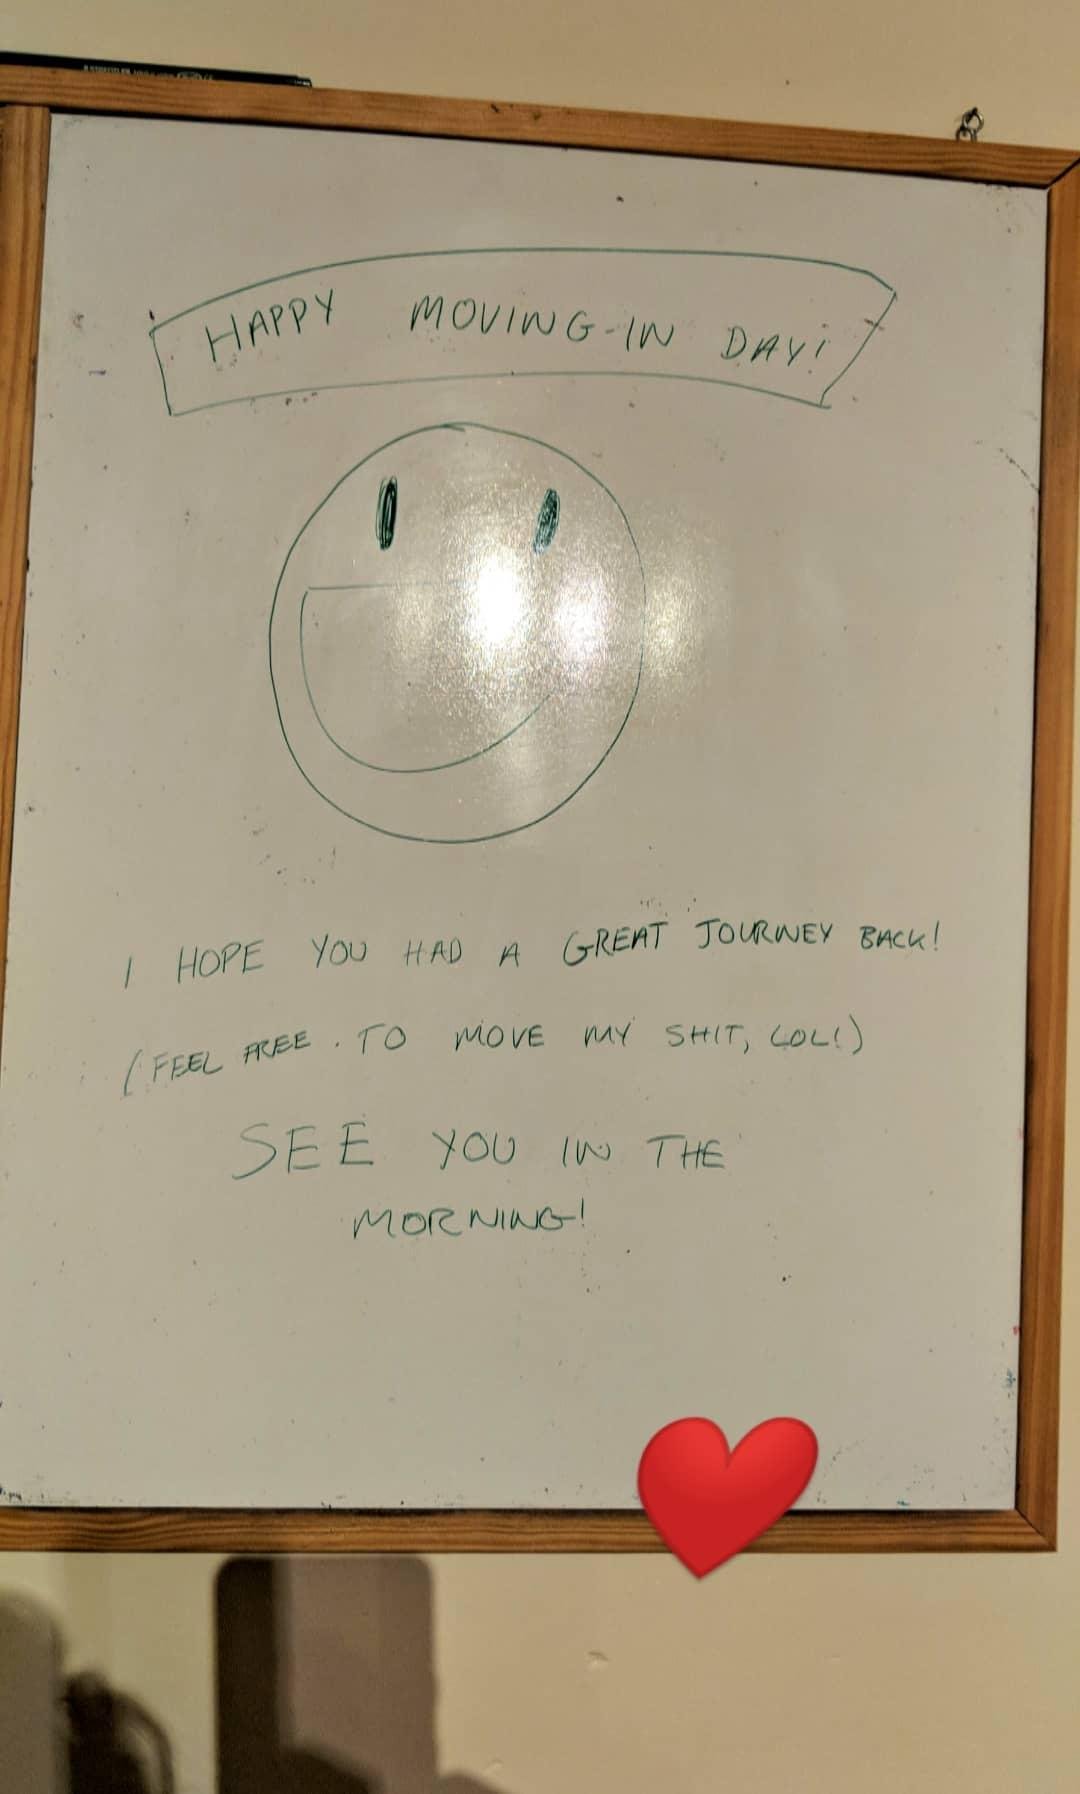 HAPPY MOVING-IN DAY!
I HOPE YOU HAD A GREAT JOURNEY BACK!
(FEEL FREE . TO MOVE MY SHIT, LOL!)
SEE YOU IN THE
MORNING!